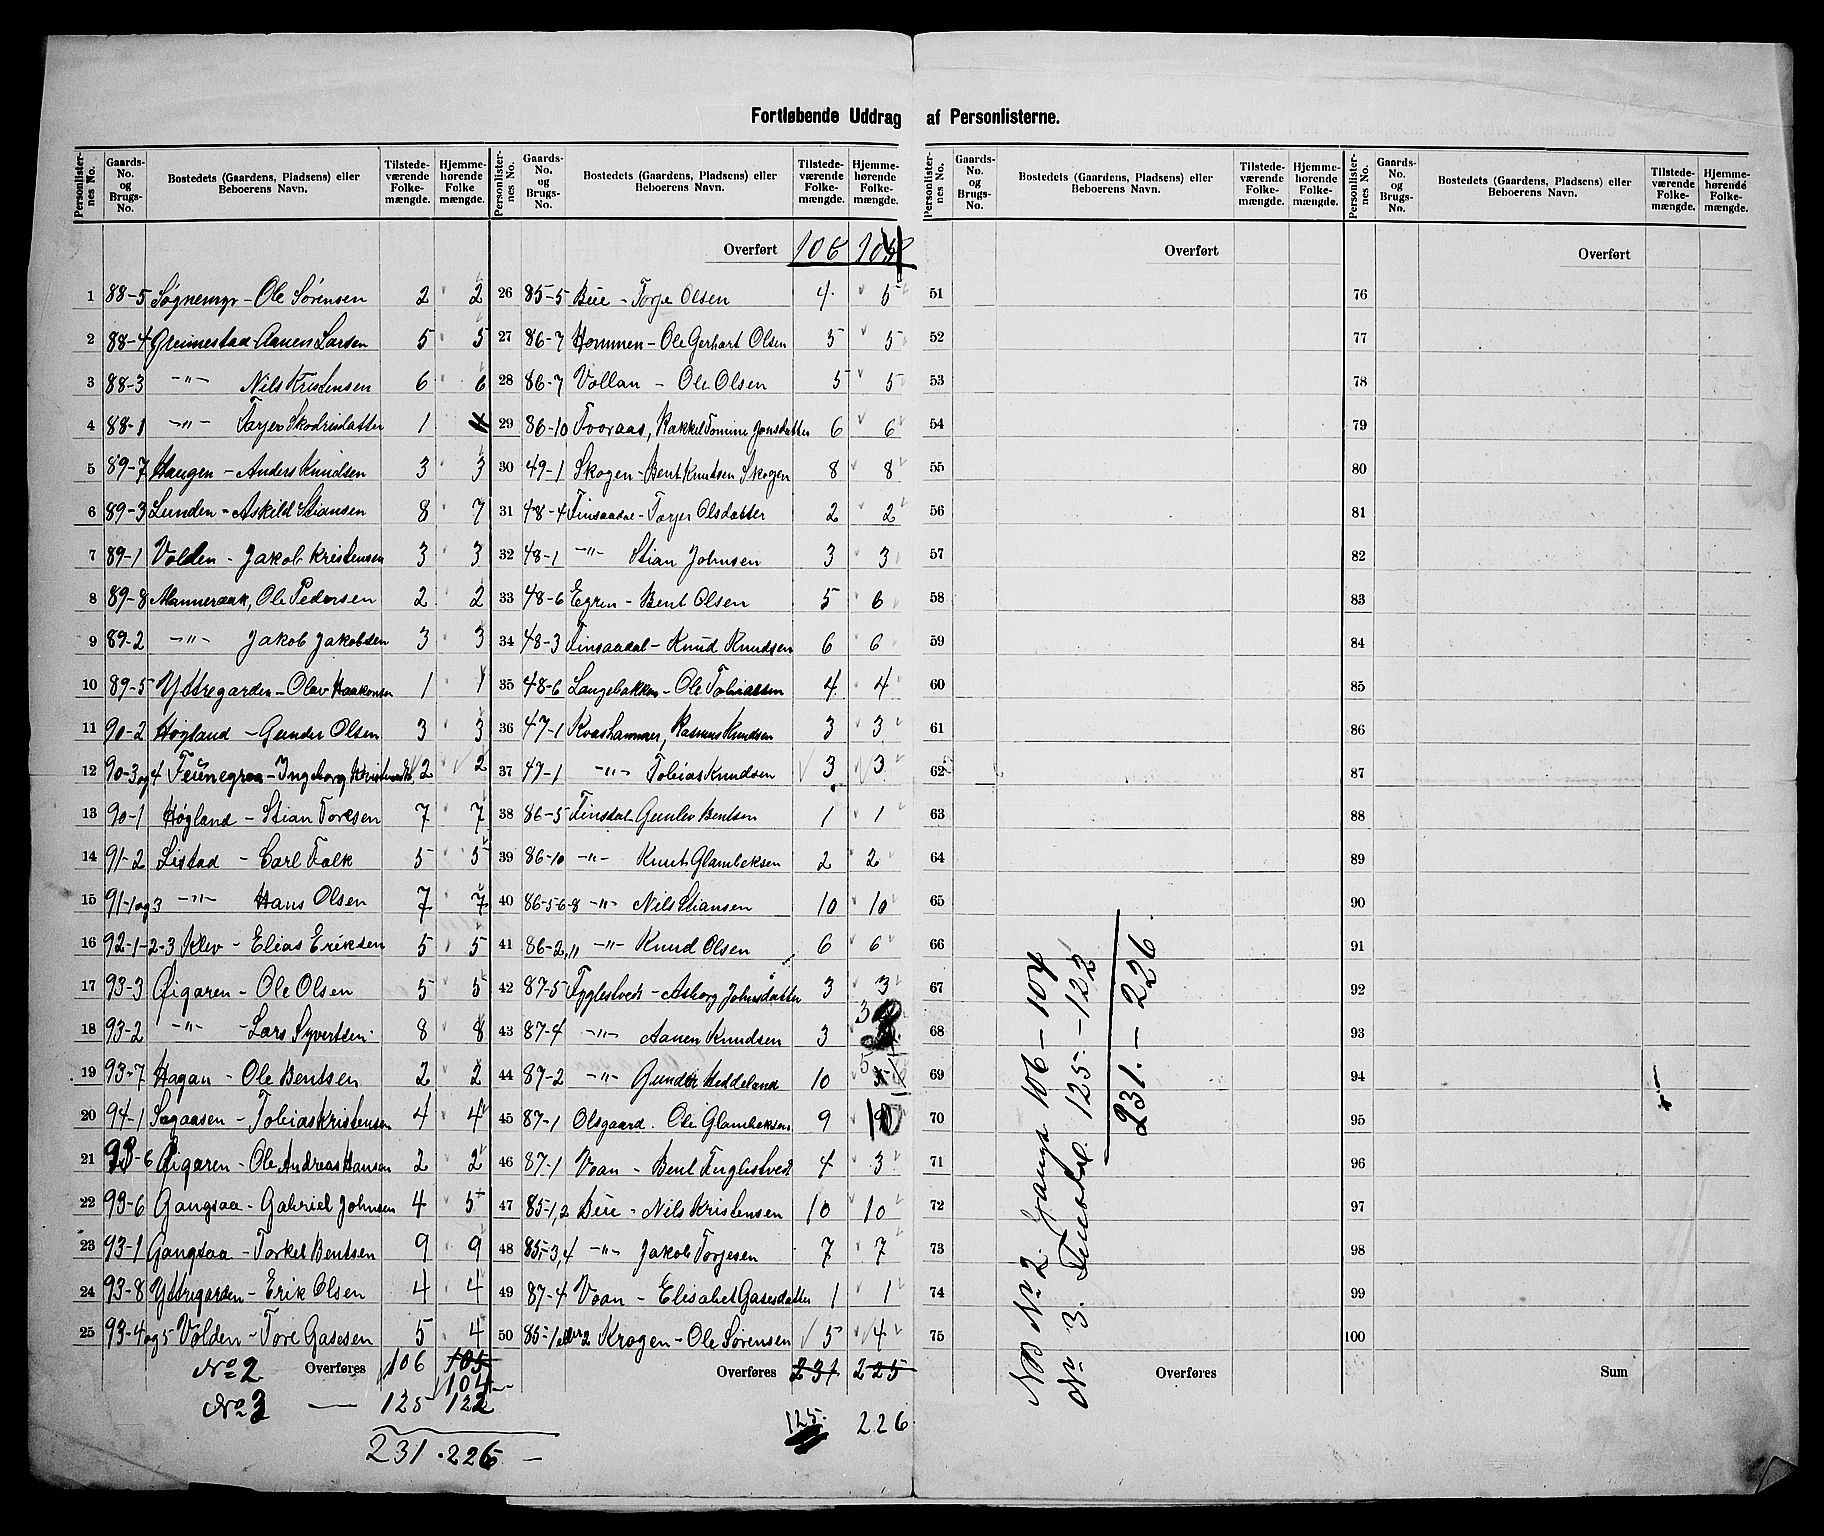 Fortløbende Uddrag af Personlisterne.
Personlisternes No. Gaards-No. og Brugs-No. Bostedets (Gaardens, Pladsens) eller Beboerens Navn. Tilstedeværende Folkemængde. Hjemmehørende Folkemængde.
Personlisternes No. Gaards-No. og Brugs-No. Bostedets (Gaardens, Pladsens) eller Beboerens Navn. Tilstedeværende Folkemængde. Hjemmehørende Folkemængde.
Personlisternes No. Gaards-No. og Brugs-No. Bostedets (Gaardens, Pladsens) eller Beboerens Navn. Tilstedeværende Folkemængde. Hjemmehørende Folkemængde.
Personlisternes No. Gaards-No. og Brugs-No. Bostedets (Gaardens, Pladsens) eller Beboerens Navn. Tilstedeværende Folkemængde. Hjemmehørende Folkemængde.
Overført 106 104
Overført
Overført
1 88-5 Søgnemyr - Ole Sørensen 2 2
2 88-4 Greimestad - Aanen Larsen 5 5
3 88-3 -"- Nils Kristensen 6 6
4 88-1 -"- Torjer 1
5 89-7 Haugen - Anders Knudsen 3 3
6 89-3 Lunden - Askild Stiansen 8 7
7 89-1 Volden - Jakob Kristensen 3 3
8 89-8 Manneraak, Ole Pedersen 2 2
9 89-2 -"- Jakob Jakobsen 3 3
10 89-5 Yttregarden - Olav Haakonsen 1 1
11 90-2 Høgland - Gunder Olsen 3 3
12 90-3 og 4 - Ingeborg 2 2
13 90-1 Høgland - Stian Toresen 7 7
14 91-2 Listad - Carl Falk 5 5
15 91-1 og 3 -"- Hans Olsen 7 7
16 92-1-2-3 Klev - Elias Eriksen 5 5
17 93-3 Øigaren - Ole Olsen 5 5
18 93-2 -"- - Lars Syvertsen 8 8
19 93-7 Hagan - Ole Bentsen 2 2
20 94-1 Sagaasen - Tobias Kristensen 4 4
21 93-6 Øigaren - Ole Andreas Hansen 2 2
22 93-6 Gangsaa - Gabriel Johnsen 4 5
23 93-1 Gangsaa - Torkel Bentsen 9 9
24 93-8 Yttregarden - Erik Olsen 4 4
25 93-4 og 5 Volden - Tore Gasesen 5 4
No 2 Overføres 106 105
104
No 3 — 125 122
231 . 226 —
26 85-5 Bue - Torje Olsen 4 5
27 86-7 Hommen - Ole Gerhart Olsen 5 5
28 86-7 Vollan - Ole Olsen 5 5
29 86-10 Tooraas, Rakkel Tomine Jonsdatter 6 6
30 49-1 Skogen - Bent Knutsen Skogen 8 8
31 48-4 Finsaadal - Torjer Olsdatter 2 2
32 48-1 -"- Stian Johnsen 3 3
33 48-6 Egren - Bent Olsen 5 6
34 48-3 Finsaadal - Knud Knudsen 6 6
35 48-6 Langebakken - Ole Tobiassen 4 4
36 47-1 Kvashammer, Rasmus Knudsen 3 3
37 47-1 -"- Tobias Knudsen 3 3
38 86-5 Finsdal Gunlev Bentsen 1 1
39 86-10 -"- Knut Glambeksen 2 2
40 86-5 6-8 -"- Nils Stiansen 10 10
41 86-2, " -"- Knud Olsen 6 6
42 87-5 Fyglestvedt - Asborg Johnsdatter 3 3
43 87-4 -"- Aanen Knudsen 3 3
44 87-2 -"- Gunder Heddeland 10
45 87-1 Olsgaard. Ole Glambeksen 9 10
46 87-1 Voan - Bent Fuglestvedt 4 3
47 85-1,2 Bue - Nils Kristensen 10 10
48 85-3,4 -"- Jakob Torjesen 7 7
49 87-4 Voan - Elisabet Gasesdatter 1 1
50 85-1 2 Krogen - Ole Sørensen 5 4
Overføres 231 225
125. 226
51
52
53
54
55
56
57
58
59
60
61
62
63
64
65
66
67
68
69
70
71
72
73
74
75
Overføres
NB No 2. Gangs 106 - 104
No 3. Finsdal 125 - 122
231. - 226.
76
77
78
79
80
81
82
83
84
85
86
87
88
89
90
91
92
93
94
95
96
97
98
99
100
Sum